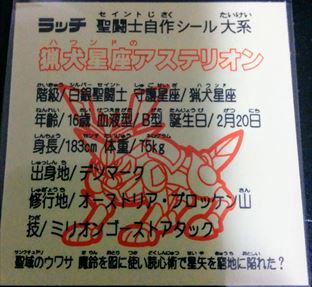 ラッチ 聖闘士自作シール 大系
猟犬星座アステリオン
階級/白銀聖闘士 守護星座/猟犬星座
年齢/16歳 血液型/B型 誕生日/2月20日
身長/183cm 体重/75kg
出身地/デンマーク
修行地/オーストリア・ブロッケン山
技/ミリオンゴーストアタック
聖域のウワサ 魔鈴を囮に使い読心術で星矢を窮地に陥れた?